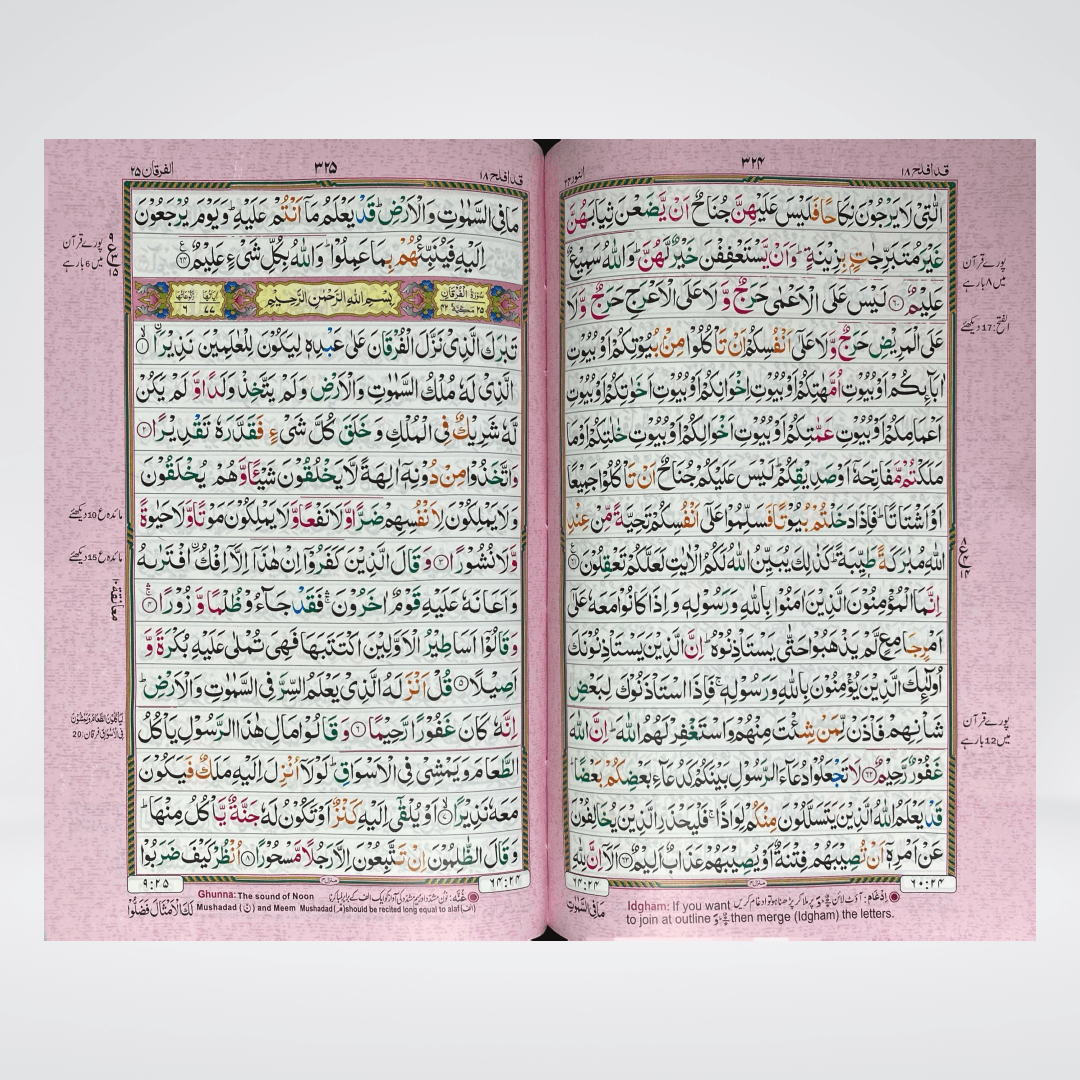 قد افلح ١٨
٣٢۴
النور ٢۴
الّٰتِیْ لَا یَرْجُوْنَ نِكَاحًا فَلَیْسَ عَلَیْهِنَّ جُنَاحٌ اَنْ یَّضَعْنَ ثِیَابَهُنَّ
غَیْرَ مُتَبَرِّجٰتٍۭ بِزِیْنَةٍ ؕ وَ اَنْ یَّسْتَعْفِفْنَ خَیْرٌ لَّهُنَّ ؕ وَ اللّٰهُ سَمِیْعٌ
عَلِیْمٌ ﴿۶۰﴾ لَیْسَ عَلَی الْاَعْمٰی حَرَجٌ وَّ لَا عَلَی الْاَعْرَجِ حَرَجٌ وَّ لَا
عَلَی الْمَرِیْضِ حَرَجٌ وَّ لَا عَلٰۤی اَنْفُسِكُمْ اَنْ تَاْكُلُوْا مِنْۢ بُیُوْتِكُمْ اَوْ بُیُوْتِ
اٰبَآىِٕكُمْ اَوْ بُیُوْتِ اُمَّهٰتِكُمْ اَوْ بُیُوْتِ اِخْوَانِكُمْ اَوْ بُیُوْتِ اَخَوٰتِكُمْ اَوْ بُیُوْتِ
اَعْمَامِكُمْ اَوْ بُیُوْتِ عَمّٰتِكُمْ اَوْ بُیُوْتِ اَخْوَالِكُمْ اَوْ بُیُوْتِ خٰلٰتِكُمْ اَوْ مَا
مَلَكْتُمْ مَّفَاتِحَهٗۤ اَوْ صَدِیْقِكُمْ ؕ لَیْسَ عَلَیْكُمْ جُنَاحٌ اَنْ تَاْكُلُوْا جَمِیْعًا
اَوْ اَشْتَاتًا ؕ فَاِذَا دَخَلْتُمْ بُیُوْتًا فَسَلِّمُوْا عَلٰۤی اَنْفُسِكُمْ تَحِیَّةً مِّنْ عِنْدِ
اللّٰهِ مُبٰرَكَةً طَیِّبَةً ؕ كَذٰلِكَ یُبَیِّنُ اللّٰهُ لَكُمُ الْاٰیٰتِ لَعَلَّكُمْ تَعْقِلُوْنَ ﴿۶۱﴾
اِنَّمَا الْمُؤْمِنُوْنَ الَّذِیْنَ اٰمَنُوْا بِاللّٰهِ وَ رَسُوْلِهٖ وَ اِذَا كَانُوْا مَعَهٗ عَلٰۤی
اَمْرٍ جَامِعٍ لَّمْ یَذْهَبُوْا حَتّٰی یَسْتَاْذِنُوْهُ ؕ اِنَّ الَّذِیْنَ یَسْتَاْذِنُوْنَكَ
اُولٰٓىِٕكَ الَّذِیْنَ یُؤْمِنُوْنَ بِاللّٰهِ وَ رَسُوْلِهٖ ۚ فَاِذَا اسْتَاْذَنُوْكَ لِبَعْضِ
شَاْنِهِمْ فَاْذَنْ لِّمَنْ شِئْتَ مِنْهُمْ وَ اسْتَغْفِرْ لَهُمُ اللّٰهَ ؕ اِنَّ اللّٰهَ
غَفُوْرٌ رَّحِیْمٌ ﴿۶۲﴾ لَا تَجْعَلُوْا دُعَآءَ الرَّسُوْلِ بَیْنَكُمْ كَدُعَآءِ بَعْضِكُمْ بَعْضًا ؕ
قَدْ یَعْلَمُ اللّٰهُ الَّذِیْنَ یَتَسَلَّلُوْنَ مِنْكُمْ لِوَاذًا ۚ فَلْیَحْذَرِ الَّذِیْنَ یُخَالِفُوْنَ
عَنْ اَمْرِهٖۤ اَنْ تُصِیْبَهُمْ فِتْنَةٌ اَوْ یُصِیْبَهُمْ عَذَابٌ اَلِیْمٌ ﴿۶۳﴾ اَلَاۤ اِنَّ لِلّٰهِ
٦٠:٢۴
٦۴:٢۴
پورے قرآن
میں ٨ بار ہے
الفتح: 17 دیکھئے
پورے قرآن
میں 12 بار ہے
اِدْغَام: آؤٹ لائن
Idgham: If you want
to join at outline
then merge (Idgham) the letters.
مَا فِی السَّمٰوٰتِ
قد افلح ١٨
٣٢۵
الفرقان ٢۵
مَا فِی السَّمٰوٰتِ وَ الْاَرْضِ ؕ قَدْ یَعْلَمُ مَاۤ اَنْتُمْ عَلَیْهِ ؕ وَ یَوْمَ یُرْجَعُوْنَ
اِلَیْهِ فَیُنَبِّئُهُمْ بِمَا عَمِلُوْا ؕ وَ اللّٰهُ بِكُلِّ شَیْءٍ عَلِیْمٌ ﴿۶۴﴾
سُوْرَةُ الْفُرْقَانِ
بِسْمِ اللّٰهِ الرَّحْمٰنِ الرَّحِیْمِ
٢۵ مَكِّیَّةٌ ۴٢
اٰیَاتُهَا ٧٧
رُكُوْعَاتُهَا ٦
تَبٰرَكَ الَّذِیْ نَزَّلَ الْفُرْقَانَ عَلٰی عَبْدِهٖ لِیَكُوْنَ لِلْعٰلَمِیْنَ نَذِیْرَا ﴿۱﴾
الَّذِیْ لَهٗ مُلْكُ السَّمٰوٰتِ وَ الْاَرْضِ وَ لَمْ یَتَّخِذْ وَلَدًا وَّ لَمْ یَكُنْ
لَّهٗ شَرِیْكٌ فِی الْمُلْكِ وَ خَلَقَ كُلَّ شَیْءٍ فَقَدَّرَهٗ تَقْدِیْرًا ﴿۲﴾
وَ اتَّخَذُوْا مِنْ دُوْنِهٖۤ اٰلِهَةً لَّا یَخْلُقُوْنَ شَیْـًٔا وَّ هُمْ یُخْلَقُوْنَ
وَ لَا یَمْلِكُوْنَ لِاَنْفُسِهِمْ ضَرًّا وَّ لَا نَفْعًا وَّ لَا یَمْلِكُوْنَ مَوْتًا وَّ لَا حَیٰوةً
وَّ لَا نُشُوْرًا ﴿۳﴾ وَ قَالَ الَّذِیْنَ كَفَرُوْۤا اِنْ هٰذَاۤ اِلَّاۤ اِفْكُ ِ۟افْتَرٰىهُ
وَ اَعَانَهٗ عَلَیْهِ قَوْمٌ اٰخَرُوْنَ ۛۚ فَقَدْ جَآءُوْ ظُلْمًا وَّ زُوْرًا ﴿۴﴾
وَ قَالُوْۤا اَسَاطِیْرُ الْاَوَّلِیْنَ اكْتَتَبَهَا فَهِیَ تُمْلٰی عَلَیْهِ بُكْرَةً وَّ
اَصِیْلًا ﴿۵﴾ قُلْ اَنْزَلَهُ الَّذِیْ یَعْلَمُ السِّرَّ فِی السَّمٰوٰتِ وَ الْاَرْضِ ؕ
اِنَّهٗ كَانَ غَفُوْرًا رَّحِیْمًا ﴿۶﴾ وَ قَالُوْا مَالِ هٰذَا الرَّسُوْلِ یَاْكُلُ
الطَّعَامَ وَ یَمْشِیْ فِی الْاَسْوَاقِ ؕ لَوْ لَاۤ اُنْزِلَ اِلَیْهِ مَلَكٌ فَیَكُوْنَ
مَعَهٗ نَذِیْرًا ﴿۷﴾ اَوْ یُلْقٰۤی اِلَیْهِ كَنْزٌ اَوْ تَكُوْنُ لَهٗ جَنَّةٌ یَّاْكُلُ مِنْهَا ؕ
وَ قَالَ الظّٰلِمُوْنَ اِنْ تَتَّبِعُوْنَ اِلَّا رَجُلًا مَّسْحُوْرًا ﴿۸﴾ اُنْظُرْ كَیْفَ ضَرَبُوْا
٦۴:٢۴
٩:٢۵
پورے قرآن
میں 6 بار ہے
مائدہ ع 10 دیکھئے
مائدہ ع 15 دیکھئے
معانقة
فرقان: 20
Ghunna: The sound of Noon
Mushadad (نّ) and Meem Mushadad (مّ) should be recited long equal to alaf (الف)
لَكَ الْاَمْثَالَ فَضَلُّوْا